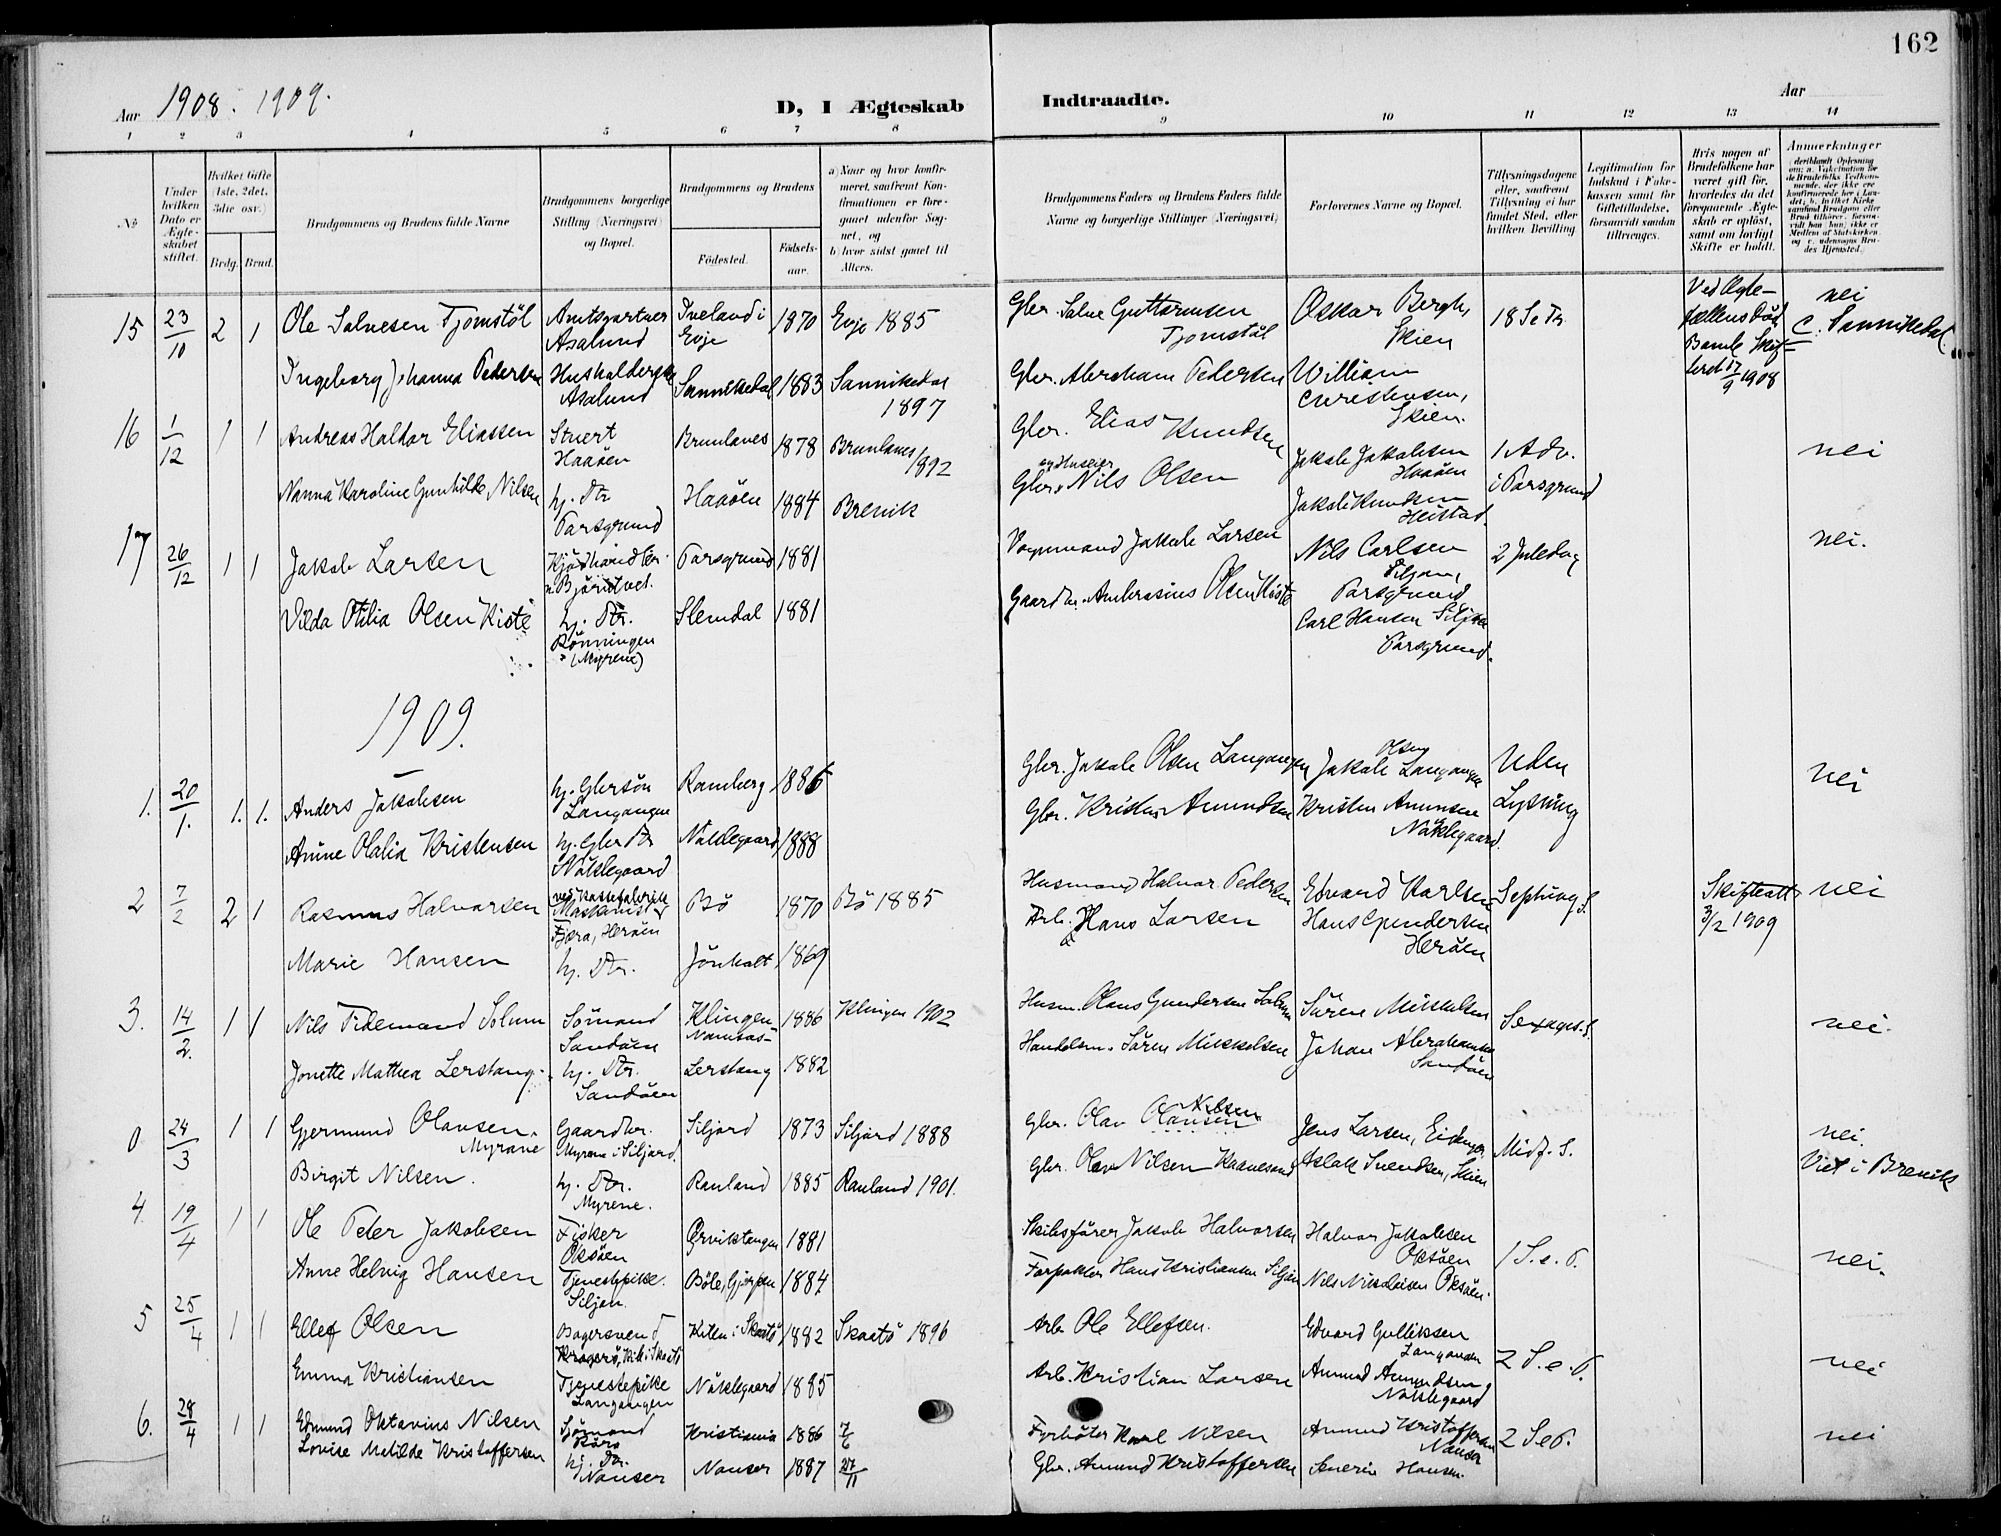 162
Aar 1908. 1909.
D, I Ægteskab Indtraadte.
Aar
1 2 3 4 5 6 7 8 9 10 11 12 13 14
№
Under hvilken Dato er Ægteskabet stiftet.
Hvilket Gifte (1ste, 2det, 3die osv.)
Brdg. Brud.
Brudgommens og Brudens fulde Navne
Brudgommens borgerlige Stilling (Næringsvei) og Bopæl.
Brudgommens og Brudens
Fødested.
Fødselsaar.
a) Naar og hvor konfirmeret, saafremt Konfirmationen er foregaaet udenfor Sognet, og
b) hvor sidst gaaet til Alters.
Brudgommens Faders og Brudens Faders fulde Navne og borgerlige Stillinger (Næringsvei)
Forlovernes Navne og Bopæl.
Tillysningsdagene eller, saafremt Tillysning ei har fundet Sted, efter hvilken Bevilling
Legitimation for Indskud i Enkekassen samt for Giftetilladelse, forsaavidt saadan tiltrænges.
Hvis nogen af Brudefolkene har været gift før, hvorledes da det foregaaende Ægteskab er opløst, samt om lovligt Skifte er holdt.
Anmærkninger
15 23/10 2 1 Ole Salvesen Tjomstøl Amtsgartner Asalund Iveland i Evje 1870 Evje 1885 Gbr. Salve Guttormsen Tjomstøl Oskar Bergh, Skien 18 S e Tr. Ved Ægtefællens Død Bamle Skifteret 17/9 1908 nei c. Sannikedal
Ingeborg Johanna Pedersen Husholderske Asalund Sannikedal 1883 Sannikedal 1897 Gbr. Abraham Pedersen William Christensen, Skien.
16 1/12 1 1 Andreas Haldor Eliassen Stuert Haaøen Brunlanes 1878 Brunlanes 1892 Gbr. Elias Knudsen Jakob Jakobsen Haaøen 1 Adv. i Porsgrund nei
Nanna Karoline Gunhilde Nilsen hj. Dtr Porsgrund Haaøen 1884 Brevik Gbr. og Huseier Nils Olsen Jakob Knudsen Heistad.
17 26/12 1 1 Jakob Larsen Kjødhandler Porsgrund 1881 Vognmand Jakob Larsen Nils Carlsen Siljan, Porsgrund 2 Juledag nei.
Vilda Otilia Olsen Kiste hj. Dtr. Rønningen (Myrene) Slemdal 1881 Gaardbr. Ambrosius Olsen Kiste Carl Hansen Siljan Porsgrund.
1909.
1. 20/1. 1. 1. Anders Jakobsen hj. Gbrsøn Langangen Ramberg 1886 Gbr. Jakob Olsen Langangen Jakob Olsen Langangen Uden Lysning nei
Anne Olalia Kristensen hj. Gbr Dtr Nøklegaard Nøklegaard 1888 Gbr. Kristen Amundsen Kristen Amunsen Nøklegaard.
2 7/2 2 1 Rasmus Halvorsen Maskinist Fjæra, Herøen Bø 1870 Bø 1885 Husmand Halvor Pedersen Edvard Karlsen Septuag. S. Skifteatt 3/2 1909 nei
Marie Hansen hj. Dtr. Jønholt 1869 Arb. Hans Larsen Hans Gundersen Herøen
3. 14/2. 1 1 Nils Tidemand Solum Sømand Sandøen Klingen Namsos 1886 Klingen 1902 Husm. Olaus Gundersen Solum Søren Mikkelsen Sexages. S. nei.
Jonette Mathea Lerstang hj. Dtr. Sandøen Lerstang 1882 Handelsm. Søren Mikkelsen Johan Abrahamsen Sandøen
0 24/3 1 1 Gjermund Olavsen Myrane Gaardbr. Myrane i Siljord. Siljord 1873 Siljord 1888 Gbr. Olav Olavsen Nilsen Jens Larsen, Eidanger Midf. S. nei. Viet i Brevik
Birgit Nilsen. hj. Dtr. Myrene. Rauland 1885 Rauland 1901. Gbr. Olav Nilsen Aslak Svendsen, Skien
4. 19/4 1 1 Ole Peder Jakobsen Fisker Oksøen Ørvikstangen 1881 Skibsfører Jakob Halvorsen Halvor Jakobsen Oksøen 1 S. e. P. nei.
Anne Helvig Hansen Tjenestepike. Siljan. Bøle, Gjerpen 1884 Forpakter Hans Kristiansen Siljan Nils Nikolaisen Oksøen.
5 25/4 1 1 Ellef Olsen Bagersvend Kragerø, Kil i Skaatø Kilen i Skaatø 1882 Skaatø 1896 Arb. Ole Ellefsen. Edvard Gulliksen Langangen 2 S. e. P. nei
Emma Kristiansen Tjenestepike Langangen Nøklegaard 1885 Arb. Kristian Larsen Amund Amundsen Nøklegaard
6. 28/4 1 1 Edmund Oktavius Nilsen Sjømand Kristiania 1886 7/6 Fyrbøter Karl Nilsen Amund Kristoffersen Nanset 2 S e P. nei
Lovise Matilde Kristoffersen hj. Dtr. Nanset Nanset 1887 27/11 Gbr. Amund Kristoffersen Severin Hansen.